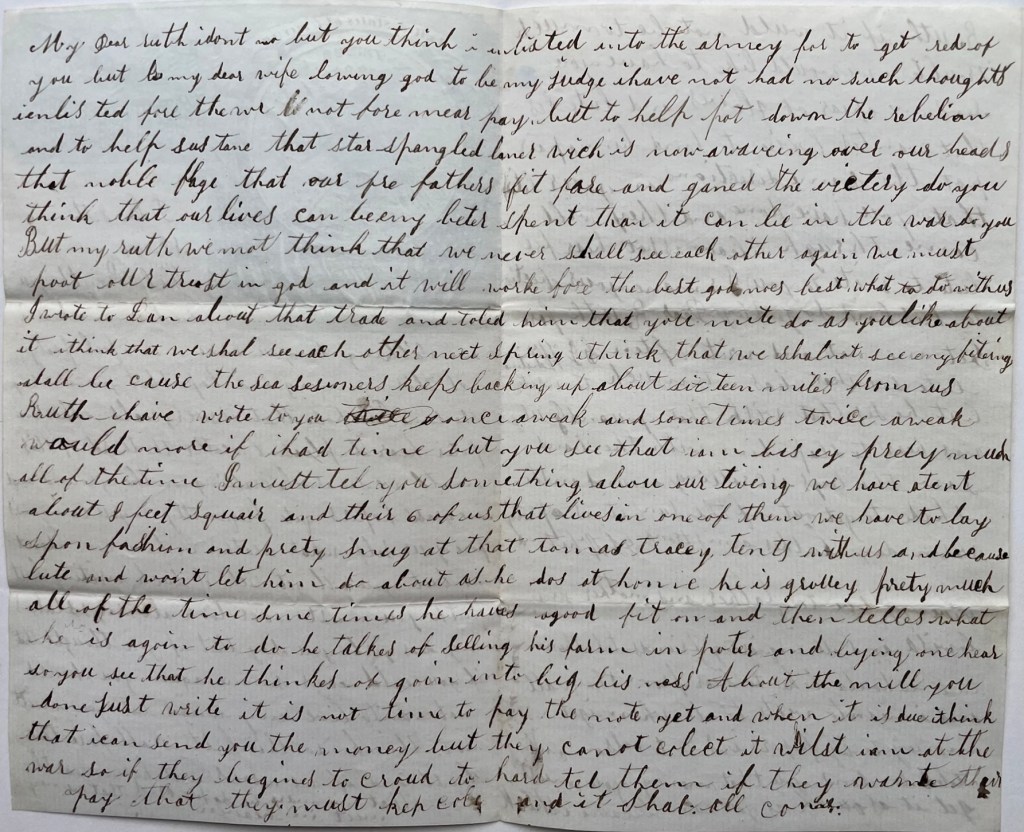 My Dear ruth idont no but you think i inlisted into the armey for to get red of
you but my dear wife loving god to be my judge ihave not had no such thoughts
ienlisted fore the not fore mear pay. but to help pot down the rebelion
and to help sustane that star spangled baner wich is now awaveing over our heads
that noble flage that our pre fathers fit fore and ganed the victery do you
think that our lives can be eny beter spent than it can be in the war do you
But my ruth we mot think that we never shall see each other again we must
poot our trust in god and it will worke fore the best god noes best what to do with us
I wrote to Dan about that trade and toled him that you mite do as you like about
it ithink that we shal see each other nect spring ithink that we shal not see eny fiting
atall be cause the sea sesioners keeps backing up about sixteen miles from us
Ruth ihave wrote to you once aweak and some times twice aweak
would more if ihad time but you see that iam bisey prety much
all of the time I must tel you something about our liveing we have atent
about 8 feet squair and their 6 of us that lives in one of them we have to lay
spon fashion and prety snug at that tomas tracey tents with us and because
lute and wont let him do about as he dos at home he is grouey prety much
all of the time sme times he haves agood fit on and then telles what
he is agoin to do he talkes of selling his farm in poter and bying one hear
so you see that he thinkes of goin into big bisness About the mill you
done just write it is not time to pay the note yet and when it is due ithink
that ican send you the money but they canot colect it wilst iam at the
war so if they begines to croud to hard tel them if they wante thair
pay that they must kep and it shal all come.